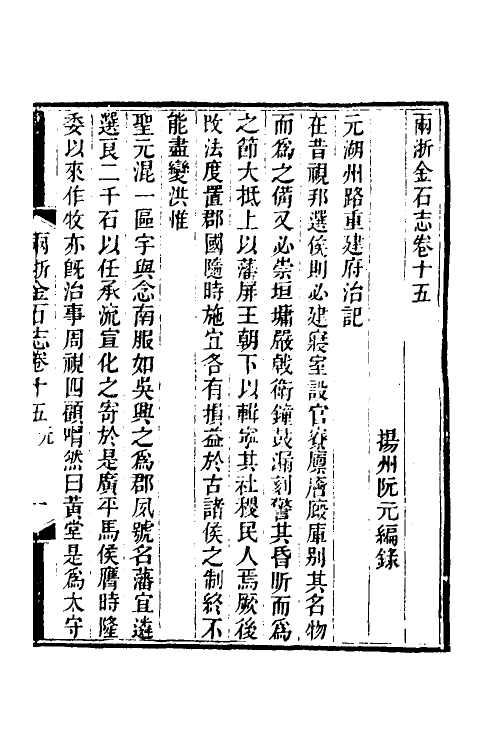 兩浙金石志卷十五
揚州阮元編錄
元湖州路重建府治記
在昔視邦選侯則必建寢室設官寮廩庿廐庫别其名物
而爲之備又必崇垣墉嚴戟衛鐘鼓漏刻警其昏昕而爲
之節大抵上以藩屏王朝下以輯寧其社稷民人焉厥後
改法度置郡國隨時施宜各有損益於古諸侯之制終不
能盡變洪惟
聖元混一區宇與念南服如吳興之爲郡夙號名藩宜遴
選良二千石以任承流宣化之寄於是廣平馬侯膺時隆
委以來作牧亦旣治事周視四顧喟然曰黃堂是爲太守
兩浙金石志卷十五 元 一